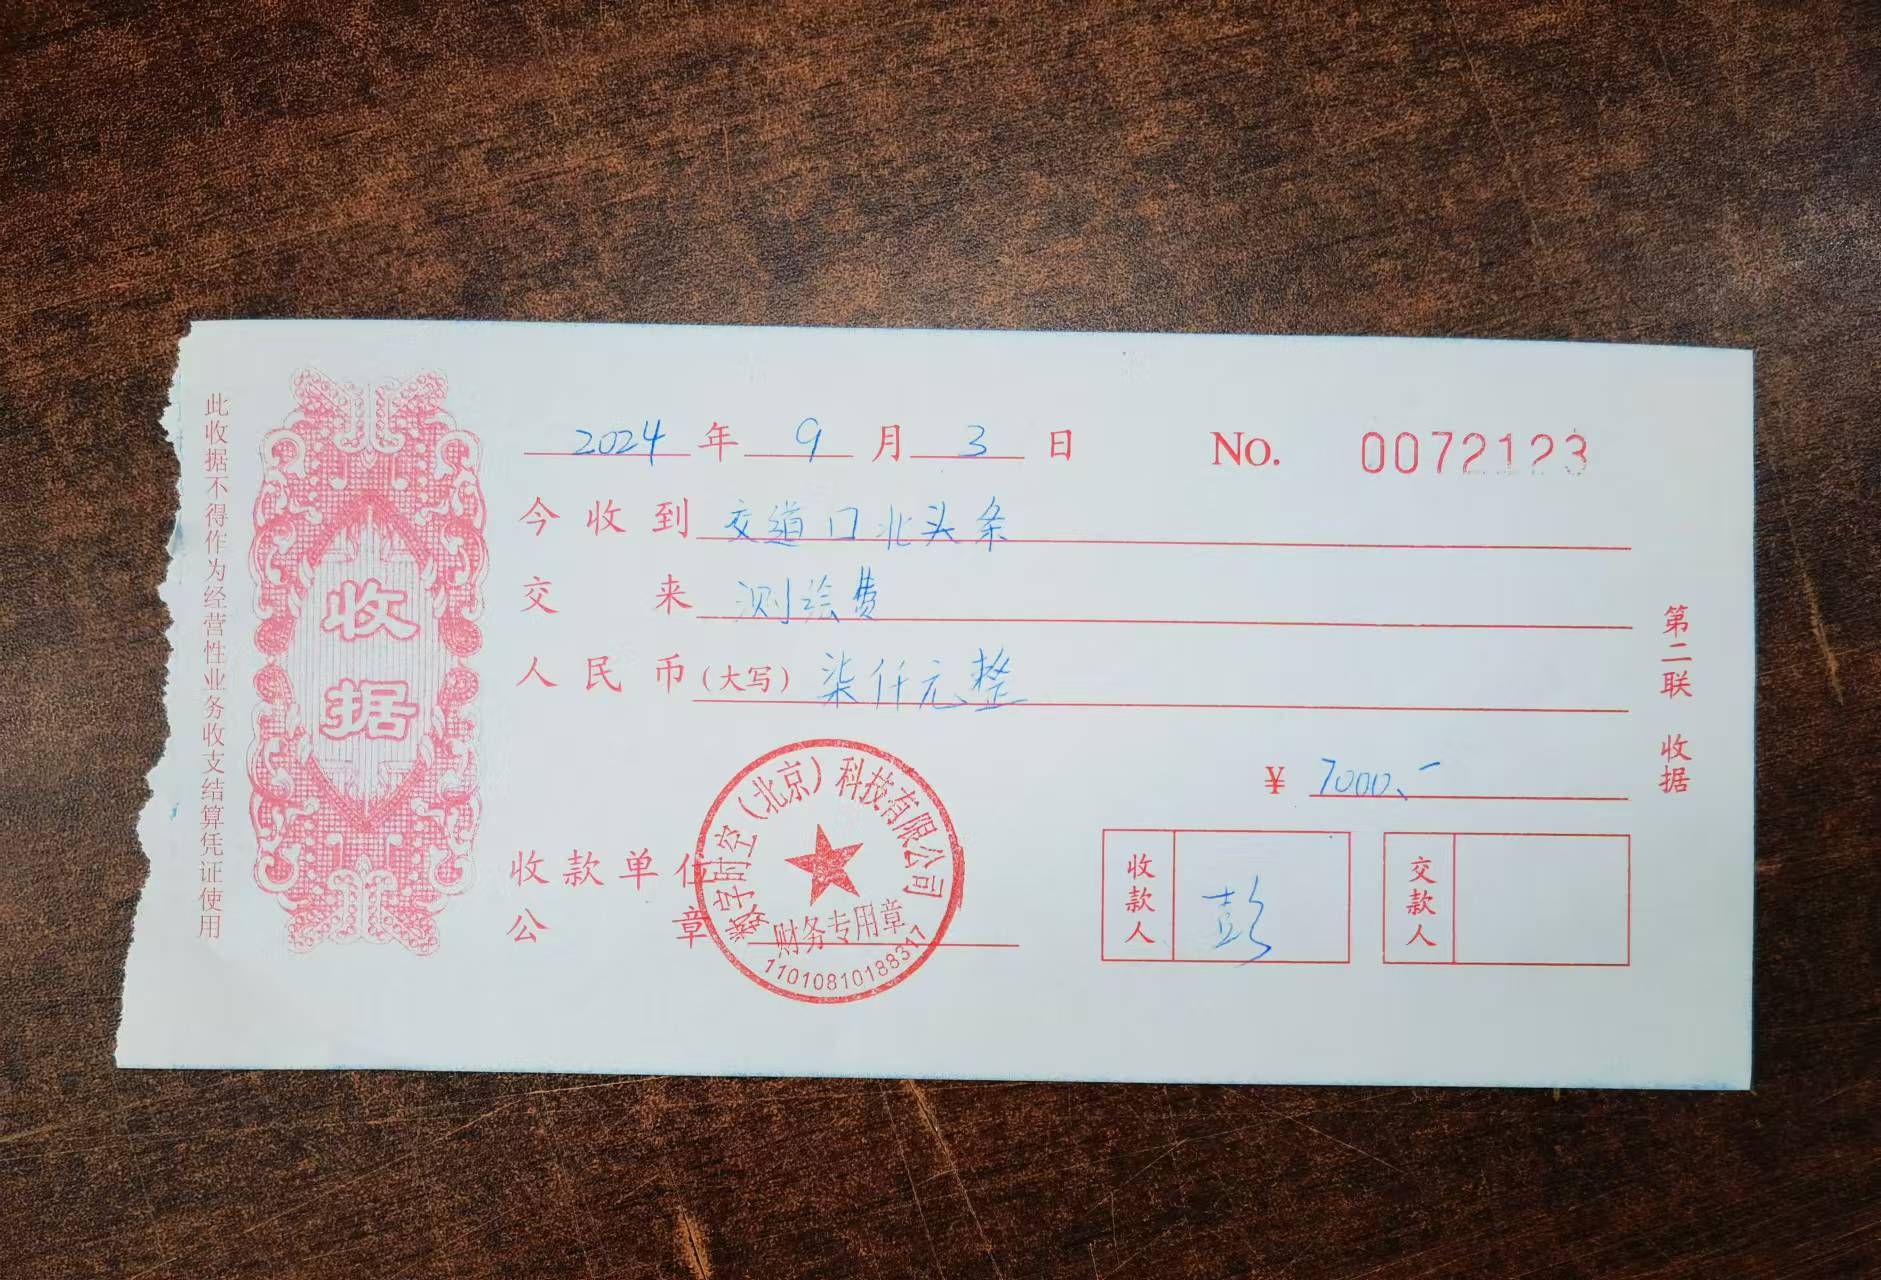 此收据不得作为经营性业务收支结算凭证使用
收据
2024 年 9 月 3 日 No. 0072123
今收到 交道口北头条
交来 测绘费
人民币(大写) 柒仟元整
¥ 7000.-
收款单位
公章
数字时空(北京)科技有限公司
财务专用章
11010810188317
收款人 彭
交款人
第二联 收据